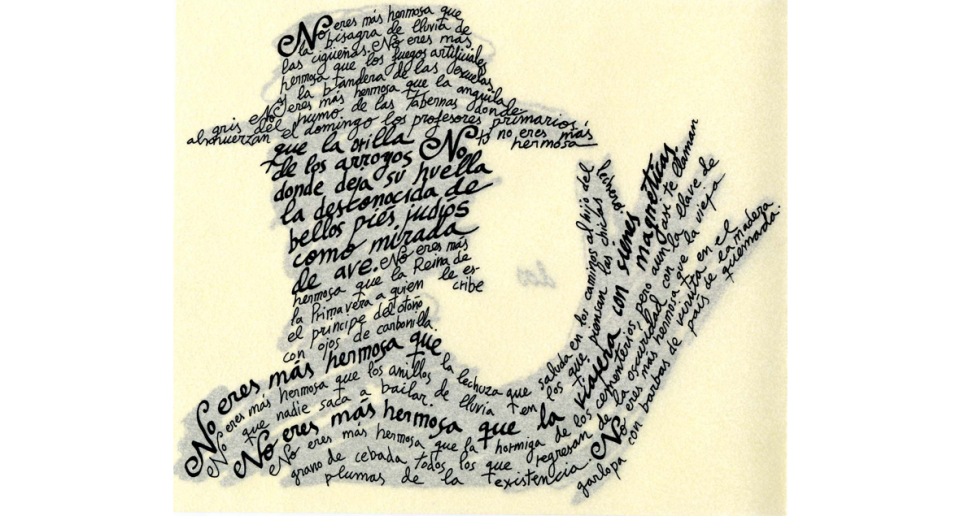 No eres más hermosa que
la bisagra de lluvia de
las cigüeñas. No eres más
hermosa que los fuegos artificiales
y la bandera de las escuelas.
No eres más hermosa que la anguila
gris del humo de las tabernas donde
almuerzan el domingo los profesores primarios.
no eres más
hermosa
que la orilla
de los arroyos
donde deja su huella
la desconocida de
bellos pies judíos
como mirada
de ave. No eres más
hermosa que la Reina de
la Primavera a quien le es-
cribe
el príncipe del otoño
con ojos de carbonilla.
No eres más hermosa que
la lechuza que saluda en los caminos al hijo del
lechero.
No eres más hermosa que los anillos de lluvia en los que piensan las
que nadie saca a bailar.
No eres más hermosa que la viajera con sienes magnéticas.
No eres más hermosa que la hormiga de los cementerios, pero aun así te llaman
grano de cebada todos los que regresan de la oscuridad con la llave de
plumas de la existencia.
No eres más hermosa que la vieja
garlopa con barbas de viruta en el
país de la madera
quemada.